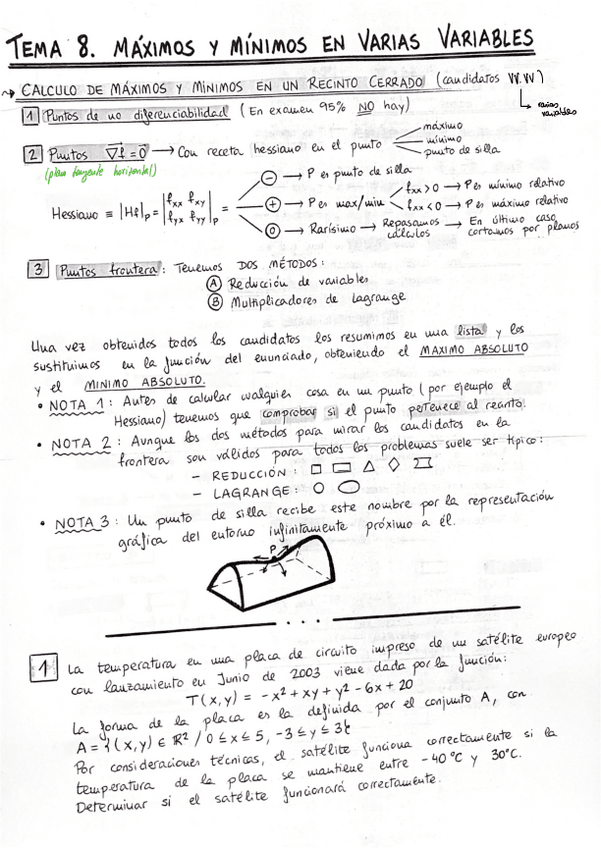 TEMA 8. MÁXIMOS Y MÍNIMOS EN VARIAS VARIABLES
→ CALCULO DE MÁXIMOS Y MINIMOS EN UN RECINTO CERRADO (candidatos VV.VV)
↳ varias variables
1 Puntos de no diferenciabilidad (En examen 95% NO hay)
2 Puntos ∇f = 0 → Con receta hessiano en el punto
máximo
mínimo
punto de silla
(plano tangente horizontal)
Hessiano ≡ |Hf|p = |fxx fxy|
|fyx fyy|p =
⊖ → P es punto de silla
⊕ → P es max/min
fxx > 0 → P es mínimo relativo
fxx < 0 → P es máximo relativo
0 → Rarísimo → Repasamos cálculos → En último caso cortamos por planos
3 Puntos frontera: Tenemos DOS MÉTODOS:
A Reducción de variables
B Multiplicadores de Lagrange
Una vez obtenidos todos los candidatos los resumimos en una lista y los
sustituimos en la función del enunciado, obteniendo el MAXIMO ABSOLUTO
y el MINIMO ABSOLUTO.
• NOTA 1: Antes de calcular cualquier cosa en un punto (por ejemplo el
Hessiano) tenemos que comprobar si el punto pertenece al recinto.
• NOTA 2: Aunque los dos métodos para mirar los candidatos en la
frontera son válidos para todos los problemas suele ser típico:
– REDUCCIÓN:
– LAGRANGE:
• NOTA 3: Un punto de silla recibe este nombre por la representación
gráfica del entorno infinitamente próximo a él.
P
1 La temperatura en una placa de circuito impreso de un satélite europeo
con lanzamiento en Junio de 2003 viene dada por la función:
T(x,y) = -x² + xy + y² - 6x + 20
La forma de la placa es la definida por el conjunto A, con
A = {(x,y) ∈ ℝ² / 0 ≤ x ≤ 5, -3 ≤ y ≤ 3}
Por consideraciones técnicas, el satélite funciona correctamente si la
temperatura de la placa se mantiene entre -40°C y 30°C.
Determinar si el satélite funcionará correctamente.